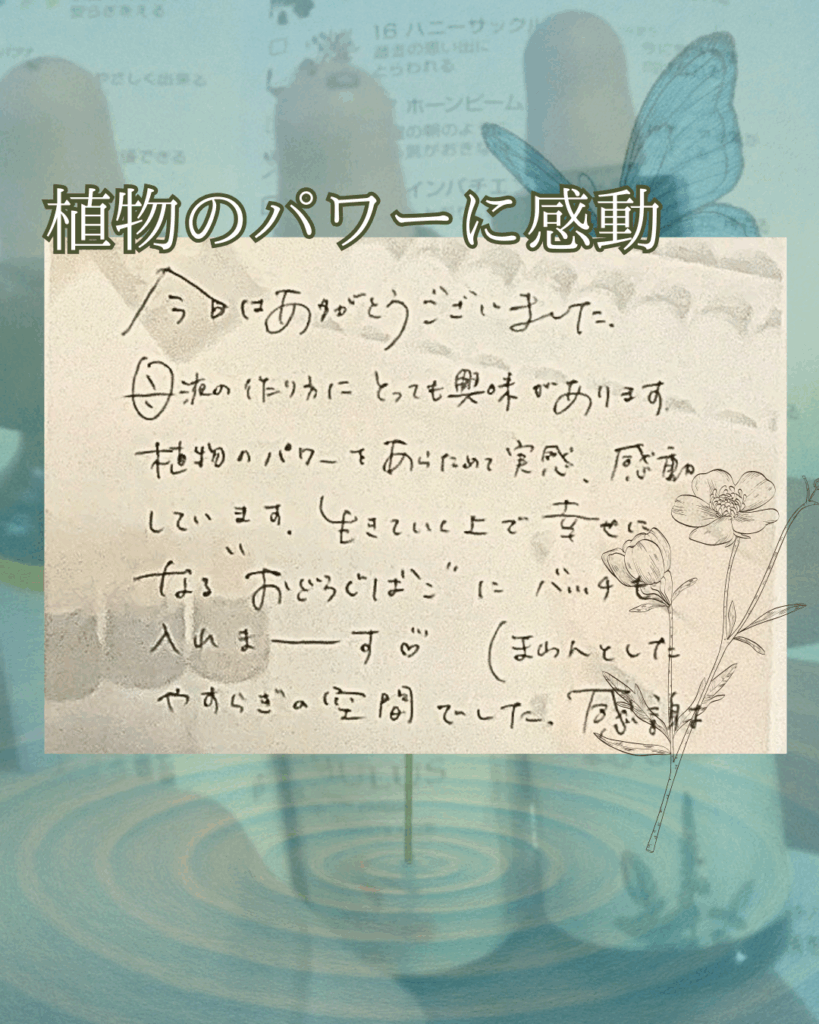 16 ハニーサックル
過去の思い出に
とらわれる
やさしく出来る
ホーンビーム
できる
インパチエ
植物のパワーに感動
今日はありがとうございました.
母液の作り方に とっても興味があります.
植物のパワーをあらためて実感、感動
しています. 生きていく上で幸せに
なる"おどうぐばこ"に バッチも
入れま――す♡ (まったりとした
やすらぎの空間でした. 感謝